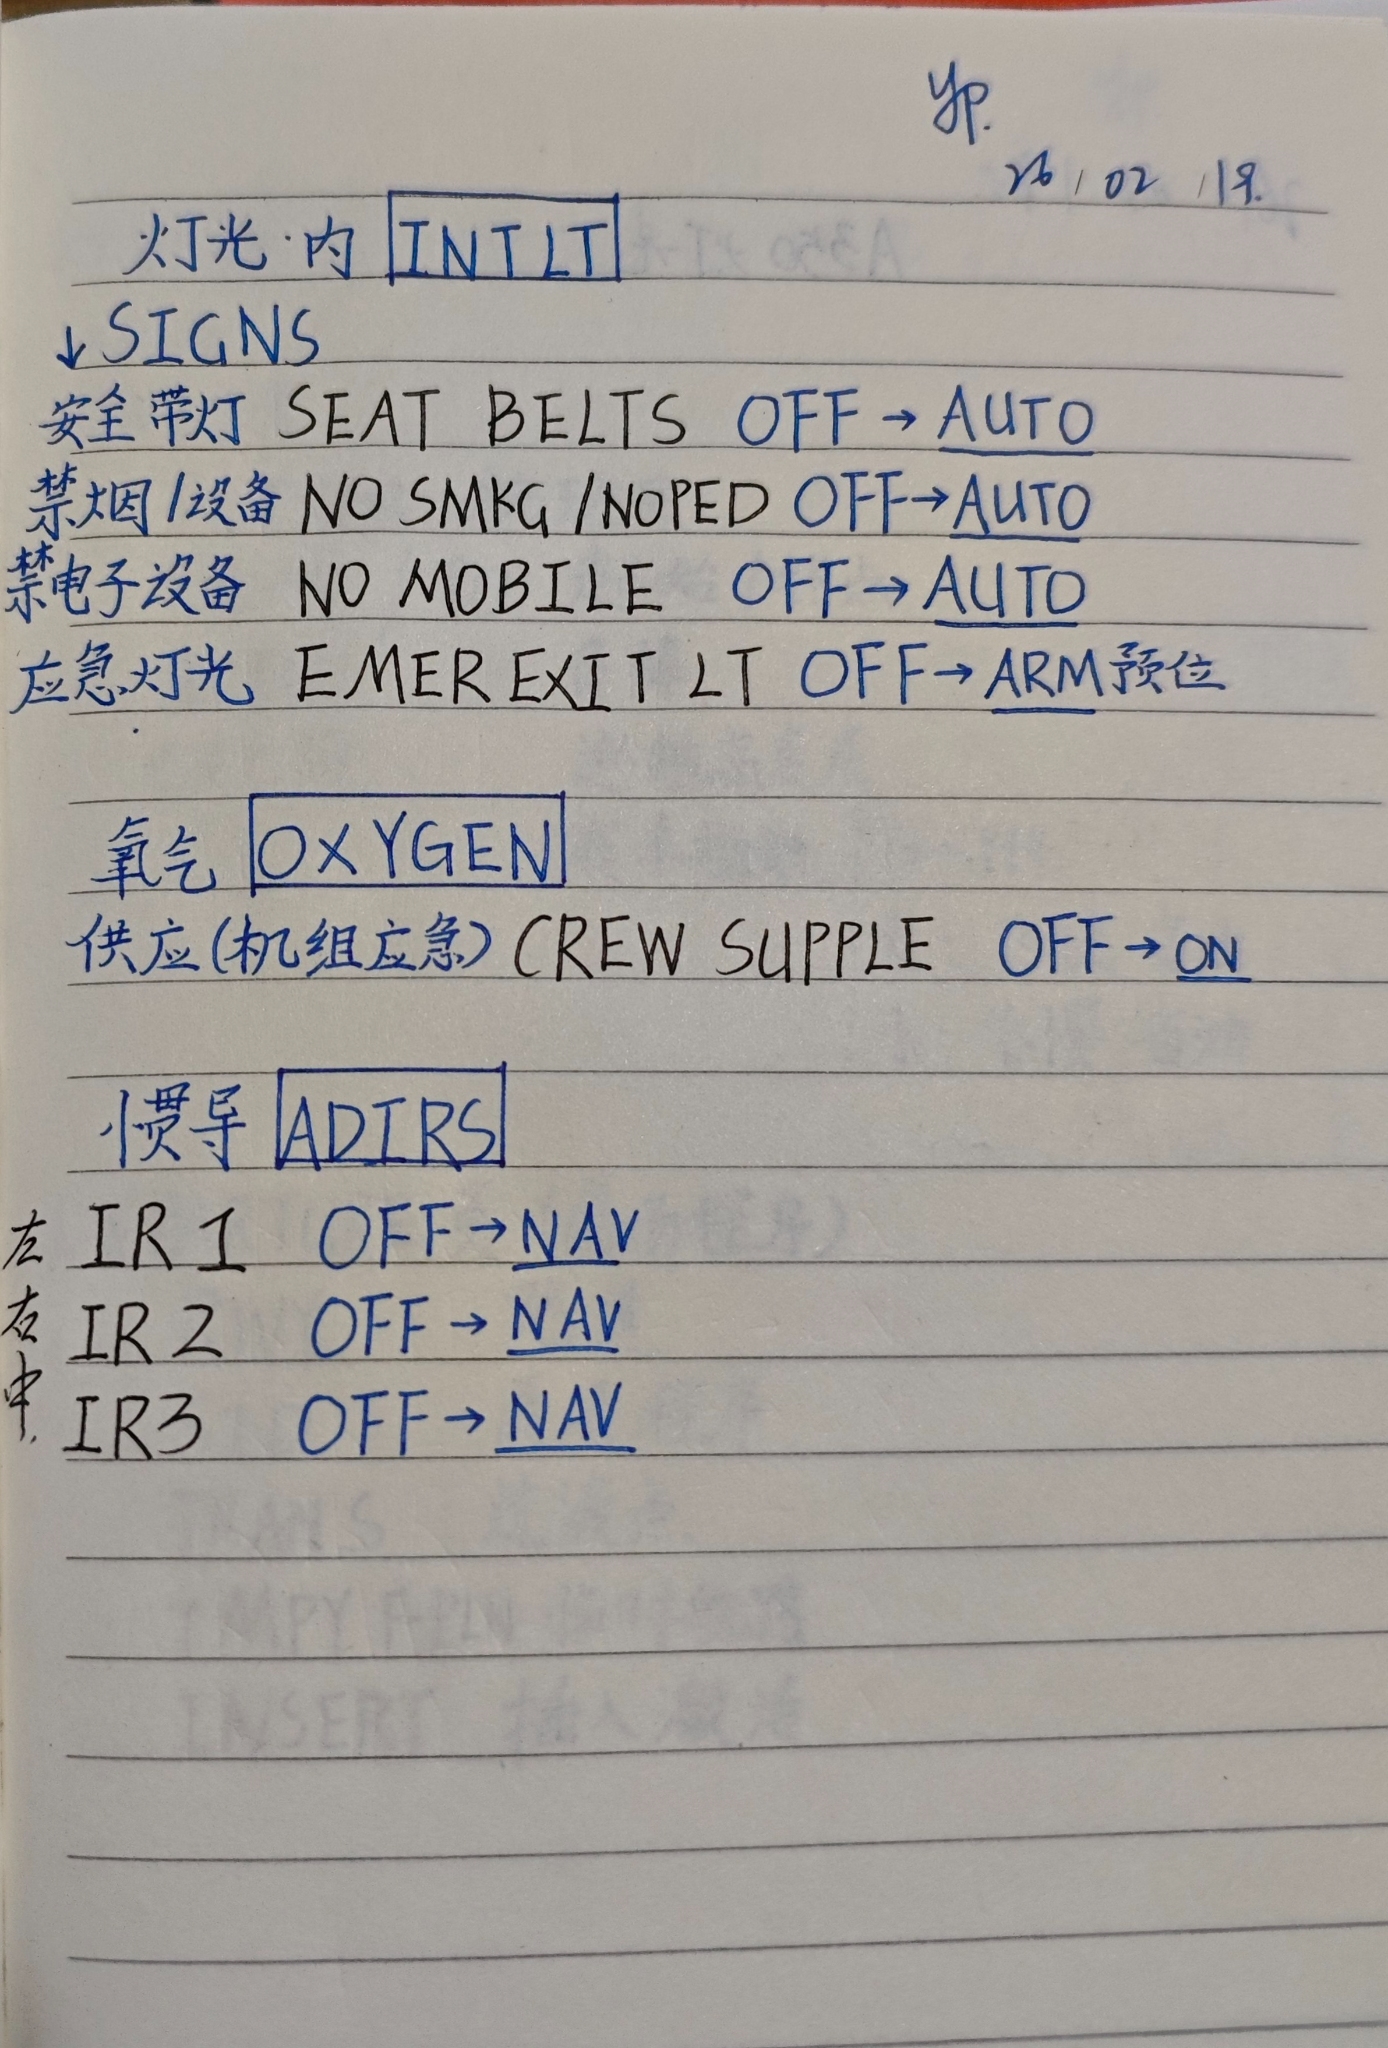 yp.
26/02/19.
灯光·内 INT LT
↓SIGNS
安全带灯 SEAT BELTS OFF→AUTO
禁烟/设备 NO SMKG/NOPED OFF→AUTO
禁电子设备 NO MOBILE OFF→AUTO
应急灯光 EMER EXIT LT OFF→ARM预位
氧气 OXYGEN
供应(机组应急) CREW SUPPLE OFF→ON
惯导 ADIRS
左 IR1 OFF→NAV
右 IR2 OFF→NAV
中. IR3 OFF→NAV